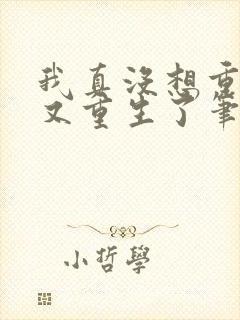 我真没想重
又重生了筆
小哲學